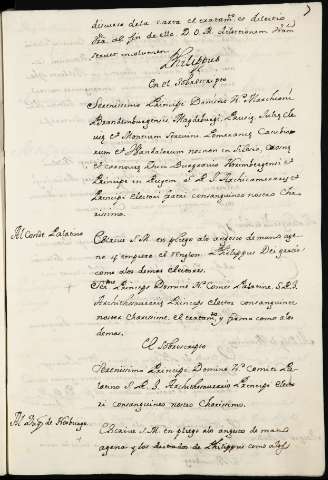 discurso dela carta el tratamto es dilectio
Vra al fin de ella D. O. R. dilectionem Vram
servet incolumem.
Philippus
En el Sobrescripto
Serenissimo Principi Domino N. Marchioni
Brandemburgensi Magdeburgi, Prusie Julie Cli-
vie et Montium Stetini Pomeranie Casubio-
rum et Vandalorum necnon in Silesia, Crosne
et Duci Burgravio Norimbergensi et
Principi in Rugen S. R. I. Archicamerario et
Principi Electori fratri consanguineo nostro Cha-
rissimo.
Al Conde Palatino
Escrive S. M. en pliego alo angosto de mano age-
na y empieza el renglon: Philippus Dei gracia
como alos demas electores.
Smo Principi Domino N. Comes Palatine, S. R. I.
Architesaurarie Princeps elector consanguinee
noster Charissime. El tratamto y firma como alos
demas.
El Sobrescripto
Serenissimo Principi Domino N. Comiti Pa-
latino S. R. I. Architesaurario Principi Electo-
ri consanguineo nostro Charissimo.
Al Duq. de
Escrive S. M. en pliego alo angosto de mano
agena y los dictados de Philippus como alos